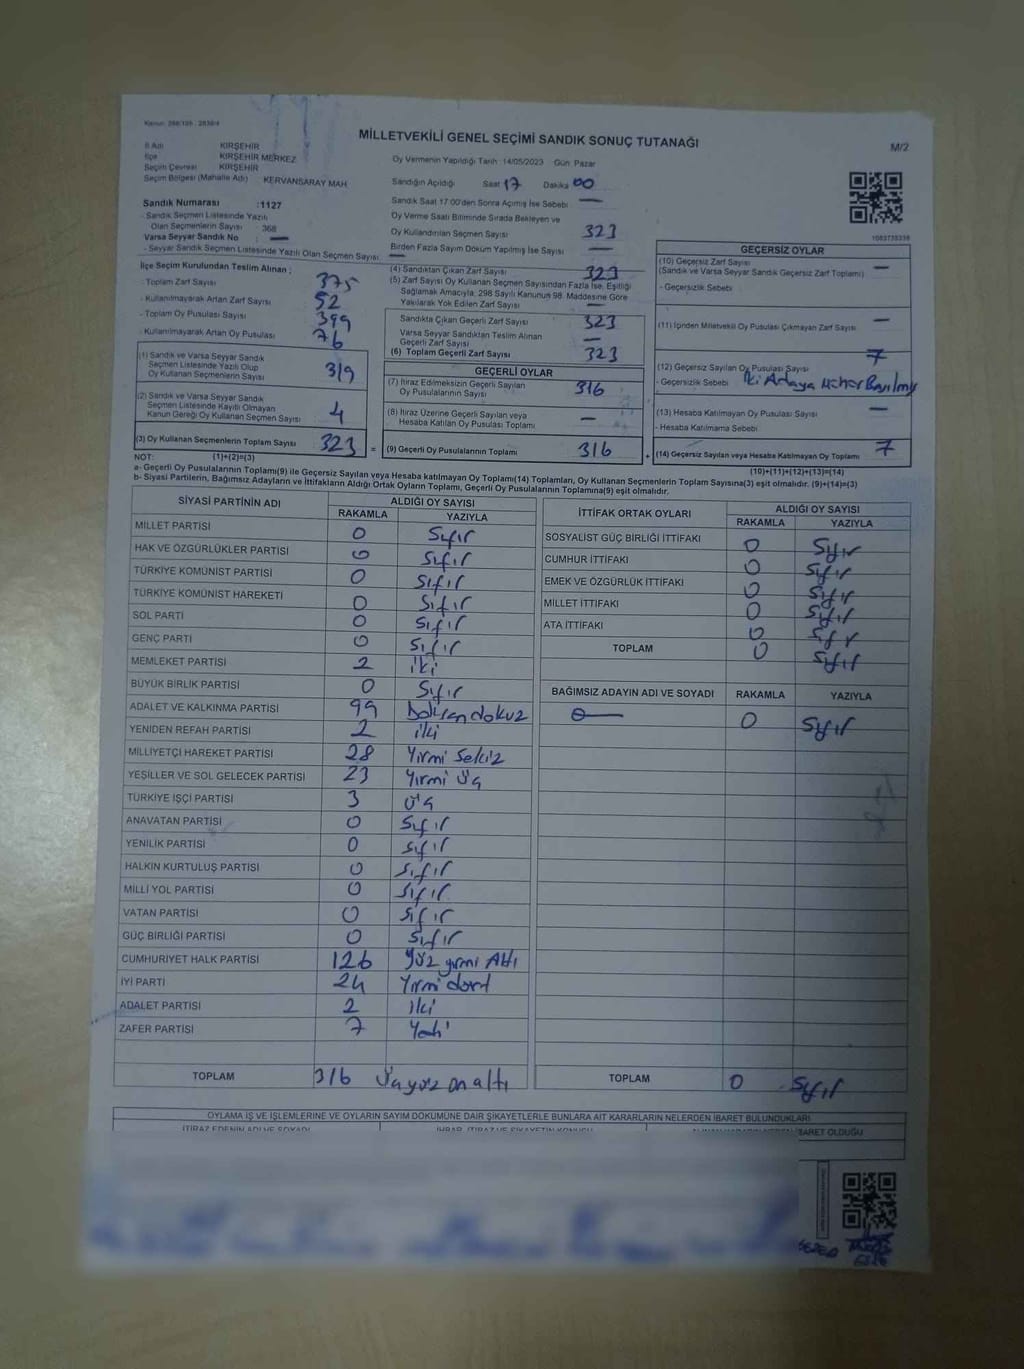 MİLLETVEKİLİ GENEL SEÇİMİ SANDIK SONUÇ TUTANAĞI
M/2
İl Adı KIRŞEHİR
İlçe KIRŞEHİR MERKEZ
Seçim Çevresi KIRŞEHİR
Seçim Bölgesi (Mahalle Adı) KERVANSARAY MAH
Oy Vermenin Yapıldığı Tarih :14/05/2023 Gün: Pazar
Sandığın Açıldığı Saat 17 Dakika 00
Sandık Saat 17:00'den Sonra Açılmış İse Sebebi —
Oy Verme Saati Bitiminde Sırada Bekleyen ve
Oy Kullandırılan Seçmen Sayısı 323
Birden Fazla Sayım Döküm Yapılmış İse Sayısı —
Sandık Numarası :1127
- Sandık Seçmen Listesinde Yazılı
Olan Seçmenlerin Sayısı : 368
Varsa Seyyar Sandık No : —
- Seyyar Sandık Seçmen Listesinde Yazılı Olan Seçmen Sayısı : —
İlçe Seçim Kurulundan Teslim Alınan ;
- Toplam Zarf Sayısı 375
- Kullanılmayarak Artan Zarf Sayısı 52
- Toplam Oy Pusulası Sayısı 399
- Kullanılmayarak Artan Oy Pusulası 76
(1) Sandık ve Varsa Seyyar Sandık
Seçmen Listesinde Yazılı Olup
Oy Kullanan Seçmenlerin Sayısı 319
(2) Sandık ve Varsa Seyyar Sandık
Seçmen Listesinde Kayıtlı Olmayan
Kanun Gereği Oy Kullanan Seçmen Sayısı 4
(3) Oy Kullanan Seçmenlerin Toplam Sayısı 323
(4) Sandıktan Çıkan Zarf Sayısı 323
(5) Zarf Sayısı Oy Kullanan Seçmen Sayısından Fazla İse, Eşitliği
Sağlamak Amacıyla, 298 Sayılı Kanunun 98. Maddesine Göre
Yakılarak Yok Edilen Zarf Sayısı —
Sandıkta Çıkan Geçerli Zarf Sayısı 323
Varsa Seyyar Sandıktan Teslim Alınan
Geçerli Zarf Sayısı —
(6) Toplam Geçerli Zarf Sayısı 323
GEÇERLİ OYLAR
(7) İtiraz Edilmeksizin Geçerli Sayılan
Oy Pusulalarının Sayısı 316
(8) İtiraz Üzerine Geçerli Sayılan veya
Hesaba Katılan Oy Pusulası Toplamı —
= (9) Geçerli Oy Pusulalarının Toplamı 316
GEÇERSİZ OYLAR
(10) Geçersiz Zarf Sayısı
(Sandık ve Varsa Seyyar Sandık Geçersiz Zarf Toplamı) —
- Geçersizlik Sebebi
(11) İçinden Milletvekili Oy Pusulası Çıkmayan Zarf Sayısı —
(12) Geçersiz Sayılan Oy Pusulası Sayısı 7
- Geçersizlik Sebebi iki Adaya
(13) Hesaba Katılmayan Oy Pusulası Sayısı —
- Hesaba Katılmama Sebebi
+ (14) Geçersiz Sayılan veya Hesaba Katılmayan Oy Toplamı 7
NOT: (1)+(2)=(3)
(10)+(11)+(12)+(13)=(14)
a- Geçerli Oy Pusulalarının Toplamı(9) ile Geçersiz Sayılan veya Hesaba katılmayan Oy Toplamı(14) Toplamları, Oy Kullanan Seçmenlerin Toplam Sayısına(3) eşit olmalıdır. (9)+(14)=(3)
b- Siyasi Partilerin, Bağımsız Adayların ve İttifakların Aldığı Ortak Oyların Toplamı, Geçerli Oy Pusulalarının Toplamına(9) eşit olmalıdır.
SİYASİ PARTİNİN ADI ALDIĞI OY SAYISI
RAKAMLA YAZIYLA
MİLLET PARTİSİ 0 Sıfır
HAK VE ÖZGÜRLÜKLER PARTİSİ 0 Sıfır
TÜRKİYE KOMÜNİST PARTİSİ 0 Sıfır
TÜRKİYE KOMÜNİST HAREKETİ 0 Sıfır
SOL PARTİ 0 Sıfır
GENÇ PARTİ 0 Sıfır
MEMLEKET PARTİSİ 2 iki
BÜYÜK BİRLİK PARTİSİ 0 Sıfır
ADALET VE KALKINMA PARTİSİ 99 Doksan dokuz
YENİDEN REFAH PARTİSİ 2 iki
MİLLİYETÇİ HAREKET PARTİSİ 28 Yirmi Sekiz
YEŞİLLER VE SOL GELECEK PARTİSİ 23 Yirmi Üç
TÜRKİYE İŞÇİ PARTİSİ 3 Üç
ANAVATAN PARTİSİ 0 Sıfır
YENİLİK PARTİSİ 0 Sıfır
HALKIN KURTULUŞ PARTİSİ 0 Sıfır
MİLLİ YOL PARTİSİ 0 Sıfır
VATAN PARTİSİ 0 Sıfır
GÜÇ BİRLİĞİ PARTİSİ 0 Sıfır
CUMHURİYET HALK PARTİSİ 126 Yüz yirmi Altı
İYİ PARTİ 24 Yirmi dört
ADALET PARTİSİ 2 iki
ZAFER PARTİSİ 7 Yedi
TOPLAM 316 Üçyüz on altı
İTTİFAK ORTAK OYLARI ALDIĞI OY SAYISI
RAKAMLA YAZIYLA
SOSYALİST GÜÇ BİRLİĞİ İTTİFAKI 0 Sıfır
CUMHUR İTTİFAKI 0 Sıfır
EMEK VE ÖZGÜRLÜK İTTİFAKI 0 Sıfır
MİLLET İTTİFAKI 0 Sıfır
ATA İTTİFAKI 0 Sıfır
TOPLAM 0 Sıfır
BAĞIMSIZ ADAYIN ADI VE SOYADI RAKAMLA YAZIYLA
0 Sıfır
TOPLAM 0 Sıfır
OYLAMA İŞ VE İŞLEMLERİNE VE OYLARIN SAYIM DÖKÜMÜNE DAİR ŞİKAYETLERLE BUNLARA AİT KARARLARIN NELERDEN İBARET BULUNDUKLARI